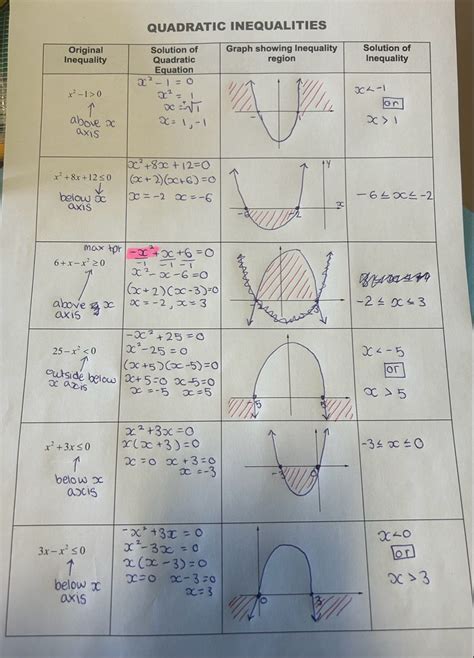 QUADRATIC INEQUALITIES
Original Inequality
Solution of Quadratic Equation
Graph showing Inequality region
Solution of Inequality
x² − 1 > 0
↑
above x
axis
x² − 1 = 0
x² = 1
x = ±√1
x = 1, −1
−1
x < −1
or
x > 1
x² + 8x + 12 ≤ 0
below x
axis
x² + 8x + 12 = 0
(x + 2)(x + 6) = 0
x = −2 x = −6
y
−6 −2
x
−6 ≤ x ≤ −2
max tpt
6 + x − x² ≥ 0
above x
axis
−x² + x + 6 = 0
−1 −1 −1
x² − x − 6 = 0
(x + 2)(x − 3) = 0
x = −2, x = 3
−2 ≤ x ≤ 3
25 − x² < 0
↑
outside below
x axis
−x² + 25 = 0
x² − 25 = 0
(x + 5)(x − 5) = 0
x + 5 = 0 x − 5 = 0
x = −5 x = 5
−5 5
x < −5
or
x > 5
x² + 3x ≤ 0
↑
below x
axis
x² + 3x = 0
x(x + 3) = 0
x = 0 x + 3 = 0
x = −3
−3 0
−3 ≤ x ≤ 0
3x − x² ≤ 0
↑
below x
axis
−x² + 3x = 0
x² − 3x = 0
x(x − 3) = 0
x = 0 x − 3 = 0
x = 3
0 3
x < 0
or
x > 3